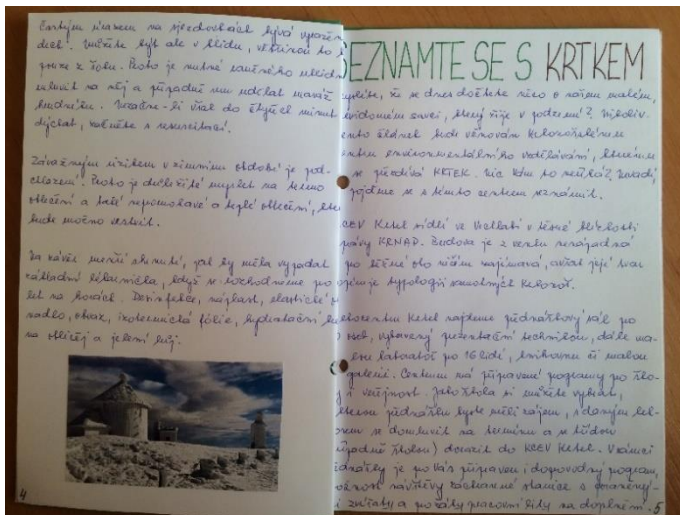 Častým úrazem na sjezdovkách bývá vyražený
dech. Můžete být ale v klidu, většinou to
pouze z šoku. Proto je nutné zraněného uklidnit
mluvit na něj a případně mu udělat masáž
hrudníku. Nezačne-li však do čtyř minut
dýchat, začněte s resuscitací.
Závažným rizikem v zimním období je pod-
chlazení. Proto je důležité myslet na termo
oblečení a také nepromokavé a teplé oblečení, které
bude možno vrstvit.
Na závěr menší shrnutí, jak by měla vypadat
základní lékárnička, když se rozhodneme
let na horách. Dezinfekce, náplast, elastické
nadlo, obvaz, izotermická fólie, hydratační
na obličej a jelení lůj.
4
SEZNAMTE SE S KRTKEM
myslíte, že se dnes dočtete něco o našem malém,
nevidomém savci, který žije v podzemí? Nikoliv.
ento článek bude věnován Krkonošskému
centru environmentálního vzdělávání, kterému
se přezdívá KRTEK. Nic vám to neříká? Nevadí,
pojďme se s tímto centrem seznámit.
KCEV Krtek sídlí ve Vrchlabí v těsné blízkosti
správy KRNAP. Budova je z venku nenápadná
po běžné oko ničím nezajímavá, avšak její tvar
typologii samotných Krkonoš.
centru Krtek najdeme přednáškový sál po
osob, vybavený prezentační technikou, dále ma-
lou laboratoř po 16 lidí, knihovnu či malou
galerii. Centrum má připravené programy po ško-
y i veřejnost. Jako škola si můžete vybrat,
kterou přednášku byste měli zájem, s daným lek-
orem se domluvit na termínu a se třídou
případně školou) dorazit do KCEV Krtek. V rámci
přednášky je po vás připraven i doprovodný program,
možnost návštěvy záchranné stanice s poraněný-
i zvířaty a pořády pracovní listy na doplnění.
5